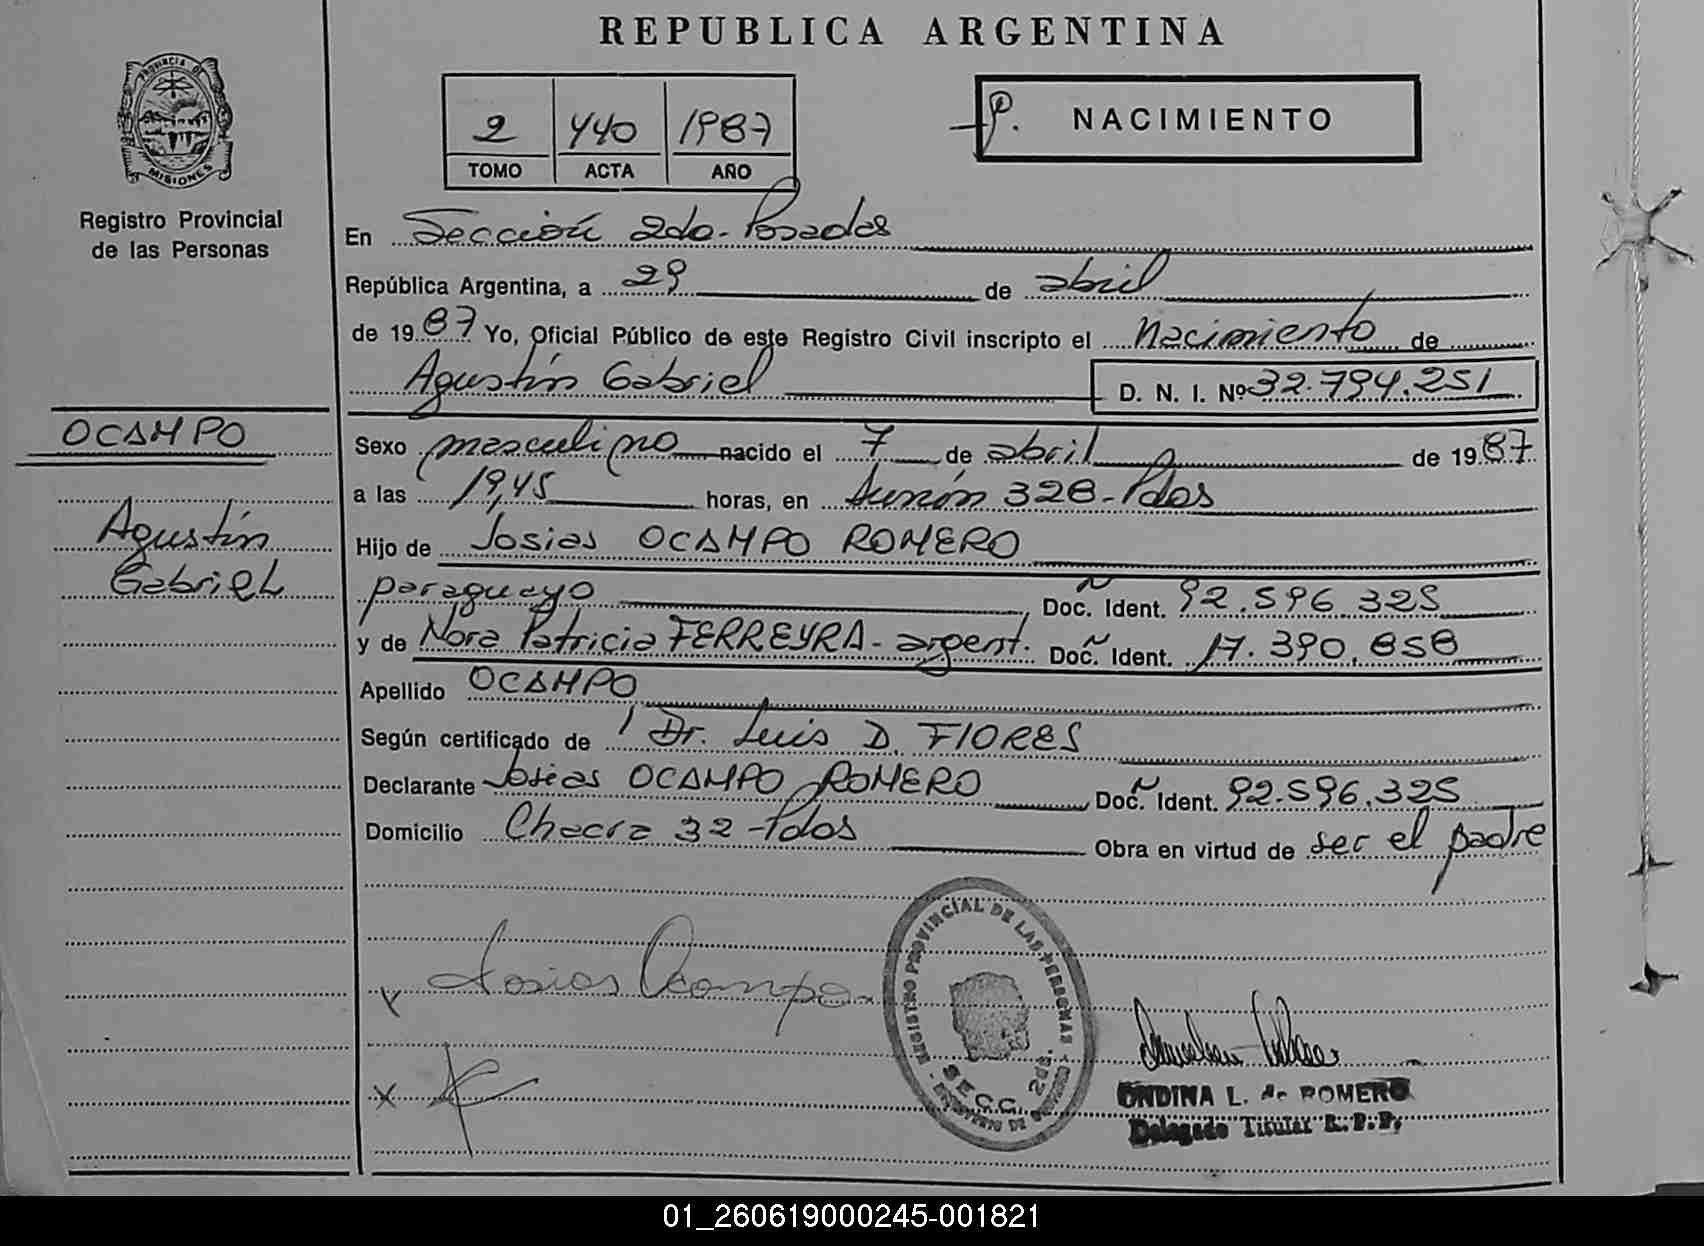 REPUBLICA ARGENTINA
PROVINCIA DE
MISIONES
Registro Provincial
de las Personas
2 440 1987
TOMO ACTA AÑO
P. NACIMIENTO
En Sección 2da. Posadas
República Argentina, a 29 de abril
de 1987 Yo, Oficial Público de este Registro Civil inscripto el Nacimiento de
Agustín Gabriel D. N. I. Nº 32.794.251
OCAMPO
Agustín
Gabriel
Sexo masculino nacido el 7 de abril de 1987
a las 19,45 horas, en Junín 328-Pdas
Hijo de Josias OCAMPO ROMERO
paraguayo Doc. Ident. 92.596.325
y de Nora Patricia FERREYRA - argent. Doc. Ident. 17.390.858
Apellido OCAMPO
Según certificado de Dr. Luis D. FLORES
Declarante Josias OCAMPO ROMERO Doc. Ident. 92.596.325
Domicilio Chacra 32 - Pdas Obra en virtud de ser el padre
Josias Ocampo
REGISTRO PROVINCIAL DE LAS PERSONAS
SECC. 2da.
ONDINA L. de ROMERO
Delegado Titular R.P.P.
01_260619000245-001821